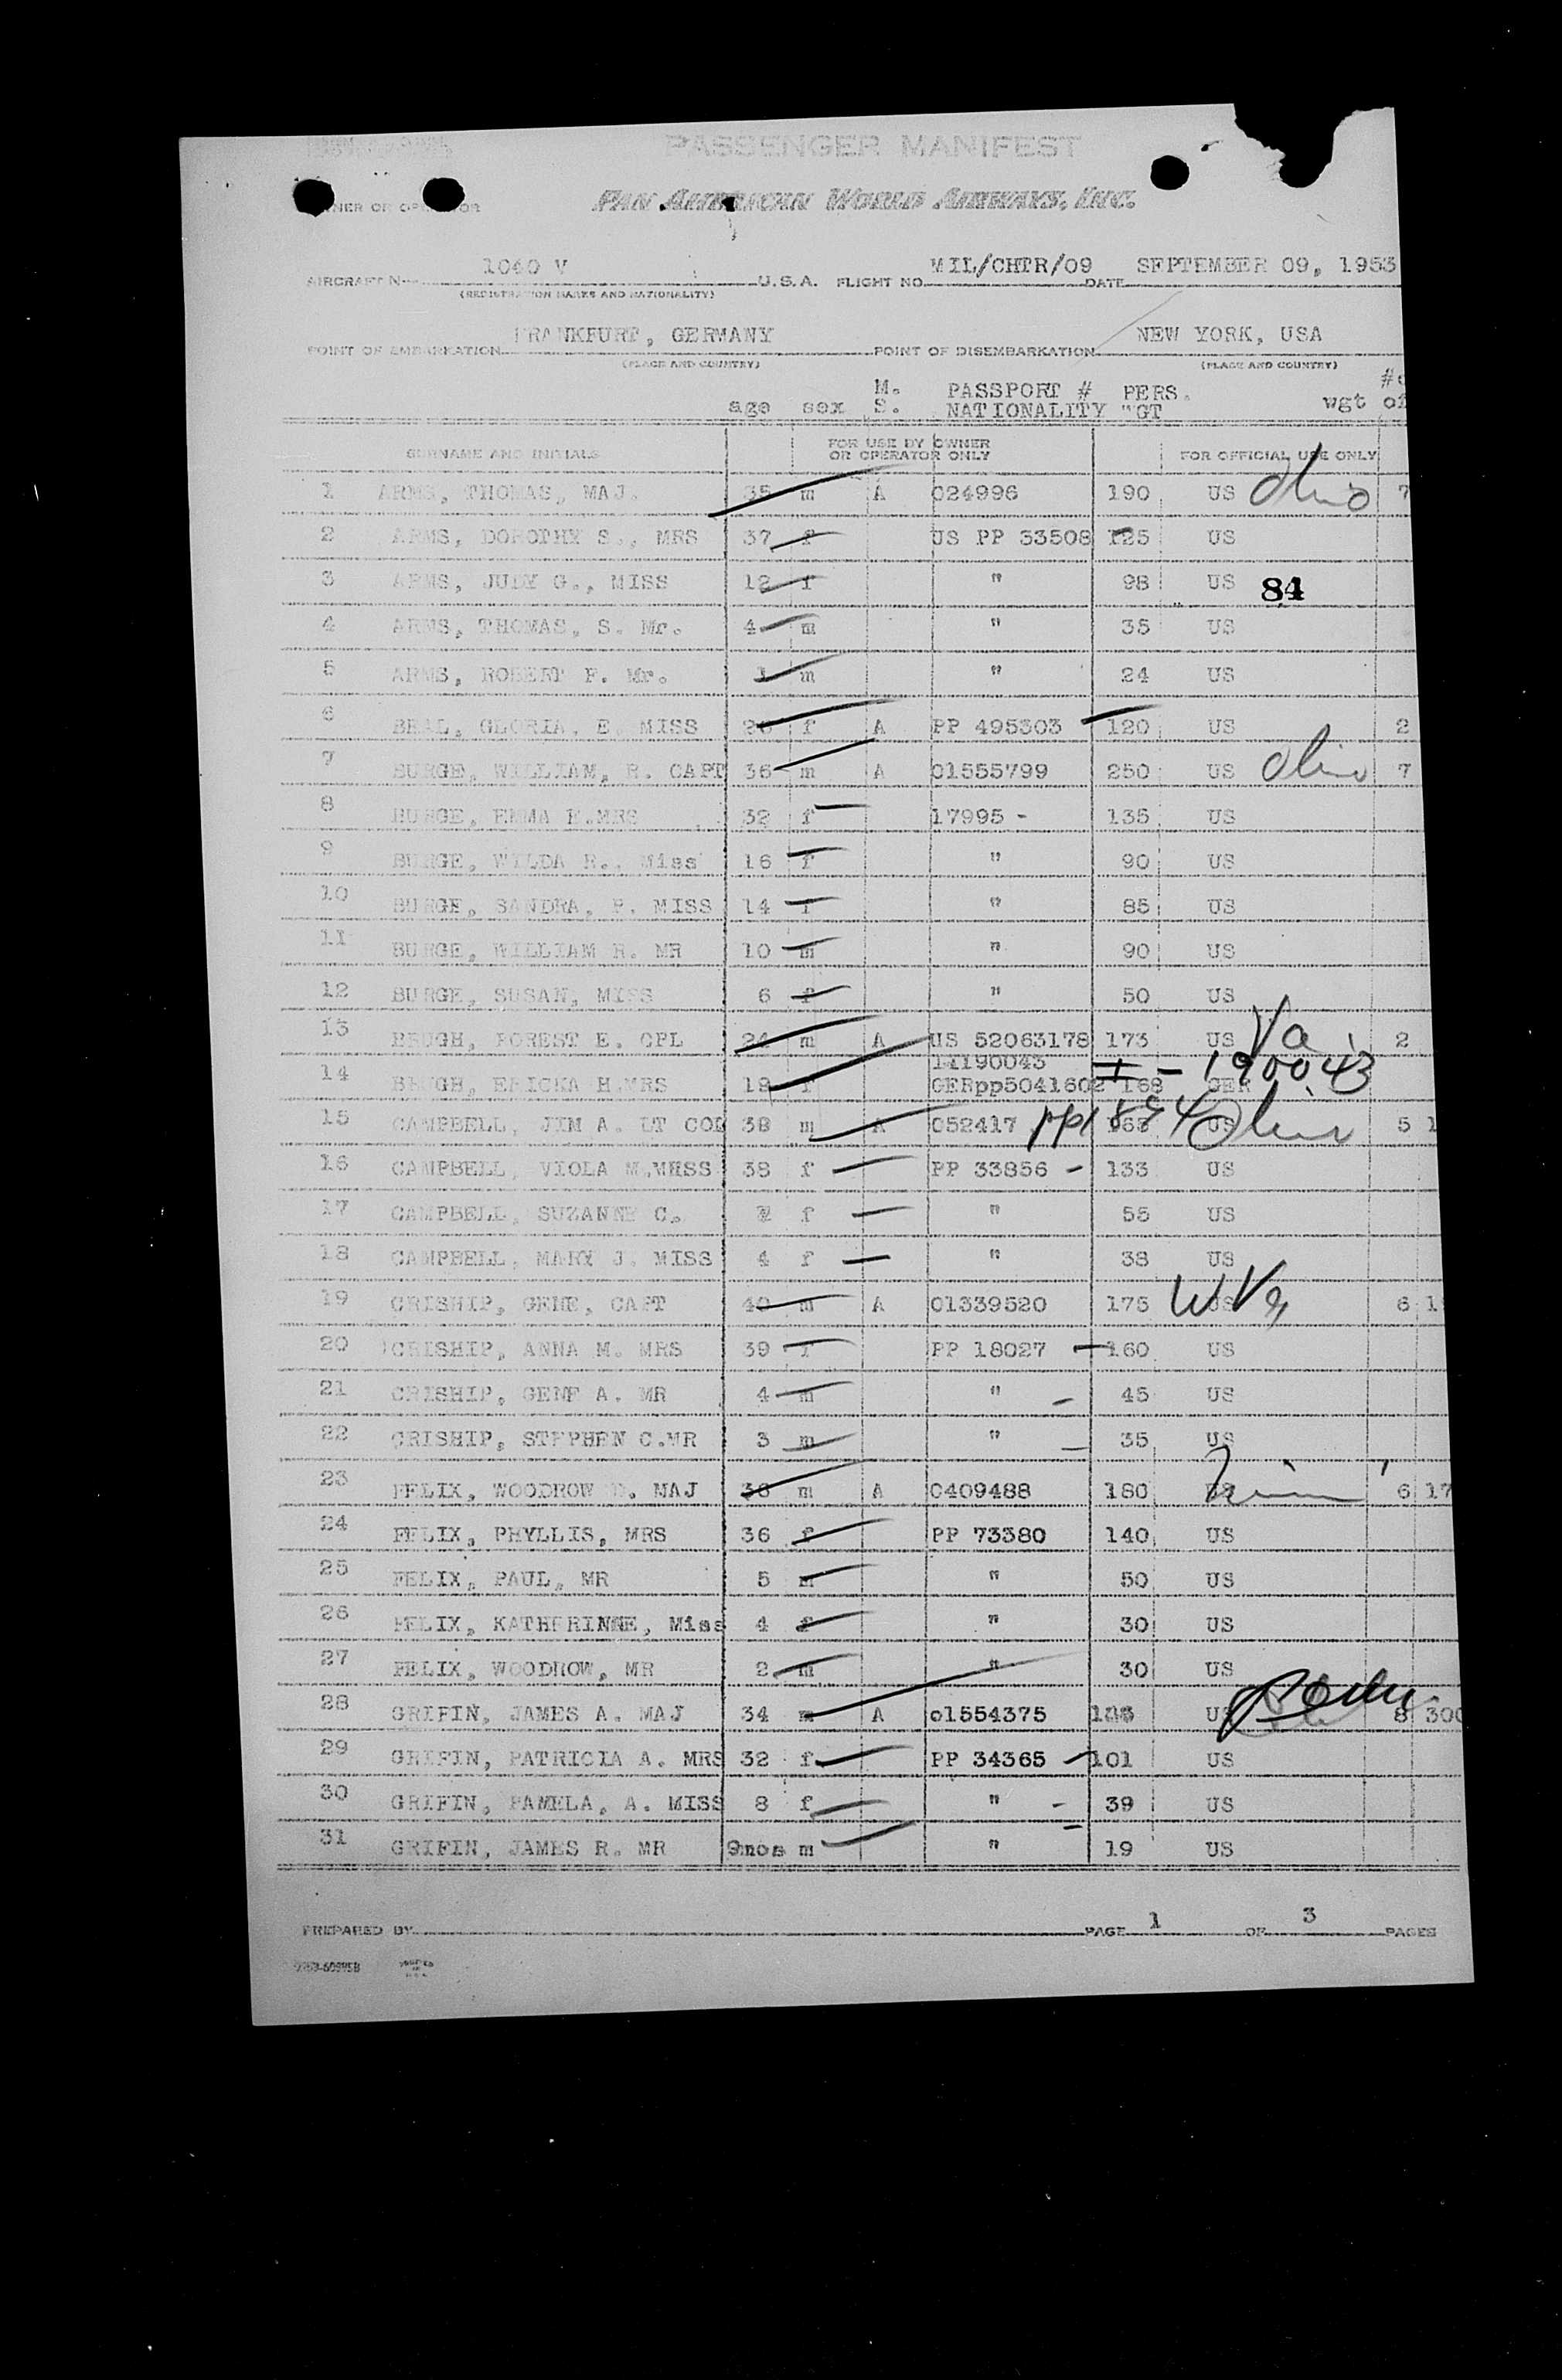 PASSENGER MANIFEST
OWNER OR OPERATOR PAN AMERICAN WORLD AIRWAYS, INC.
AIRCRAFT 1040 V U.S.A. FLIGHT NO. MIL/CHTR/09 DATE SEPTEMBER 09, 1953
(REGISTRATION MARKS AND NATIONALITY)
POINT OF EMBARKATION FRANKFURT, GERMANY POINT OF DISEMBARKATION NEW YORK, USA
(PLACE AND COUNTRY) (PLACE AND COUNTRY)
M. PASSPORT # PERS.
age sex S. NATIONALITY WGT wgt of
SURNAME AND INITIALS FOR USE BY OWNER OR OPERATOR ONLY FOR OFFICIAL USE ONLY
1 ARMS, THOMAS, MAJ. 35 m A 024996 190 US Ohio 7
2 ARMS, DOROTHY S., MRS 37 f US PP 33508 125 US
3 ARMS, JUDY G., MISS 12 f " 98 US 84
4 ARMS, THOMAS, S. Mr. 4 m " 35 US
5 ARMS, ROBERT F. Mr. 1 m " 24 US
6 BEAL, GLORIA, E. MISS 26 f A PP 495303 120 US 2
7 BURGE, WILLIAM, R. CAPT 36 m A 01555799 250 US Ohio 7
8 BURGE, EMMA E.MRS 32 f 17995 - 135 US
9 BURGE, WILDA R., Miss 16 f " 90 US
10 BURGE, SANDRA, P. MISS 14 f " 85 US
11 BURGE, WILLIAM R. MR 10 m " 90 US
12 BURGE, SUSAN, MISS 6 f " 50 US
13 BRUGH, FOREST E. CPL 24 m A US 52063178 173 US Va 2
14 BRUGH, ERICKA H.MRS 19 f 11190043 GERpp5041602 168 GER I - 190043
15 CAMPBELL, JIM A. LT COL 38 m A 052417 168 US Ohio 5 1
16 CAMPBELL, VIOLA M.MRSS 38 f PP 33856 - 133 US
17 CAMPBELL, SUZANNE C. 7 f " 55 US
18 CAMPBELL, MARY J. MISS 4 f " 38 US
19 CRISHIP, GENE, CAPT 40 m A 01339520 175 US W Va 6 1
20 CRISHIP, ANNA M. MRS 39 f PP 18027 - 160 US
21 CRISHIP, GENE A. MR 4 m " - 45 US
22 CRISHIP, STEPHEN C.MR 3 m " - 35 US
23 FELIX, WOODROW MAJ 38 m A 0409488 180 US 6 17
24 FELIX, PHYLLIS, MRS 36 f PP 73380 140 US
25 FELIX, PAUL, MR 5 m " 50 US
26 FELIX, KATHERINNE, Miss 4 f " 30 US
27 FELIX, WOODROW, MR 2 m " 30 US
28 GRIFIN, JAMES A. MAJ 34 m A o1554375 US 8 300
29 GRIFIN, PATRICIA A. MRS 32 f PP 34365 - 101 US
30 GRIFIN, PAMELA, A. MISS 8 f " - 39 US
31 GRIFIN, JAMES R. MR 9mos m " 19 US
PREPARED BY PAGE 1 OF 3 PAGES